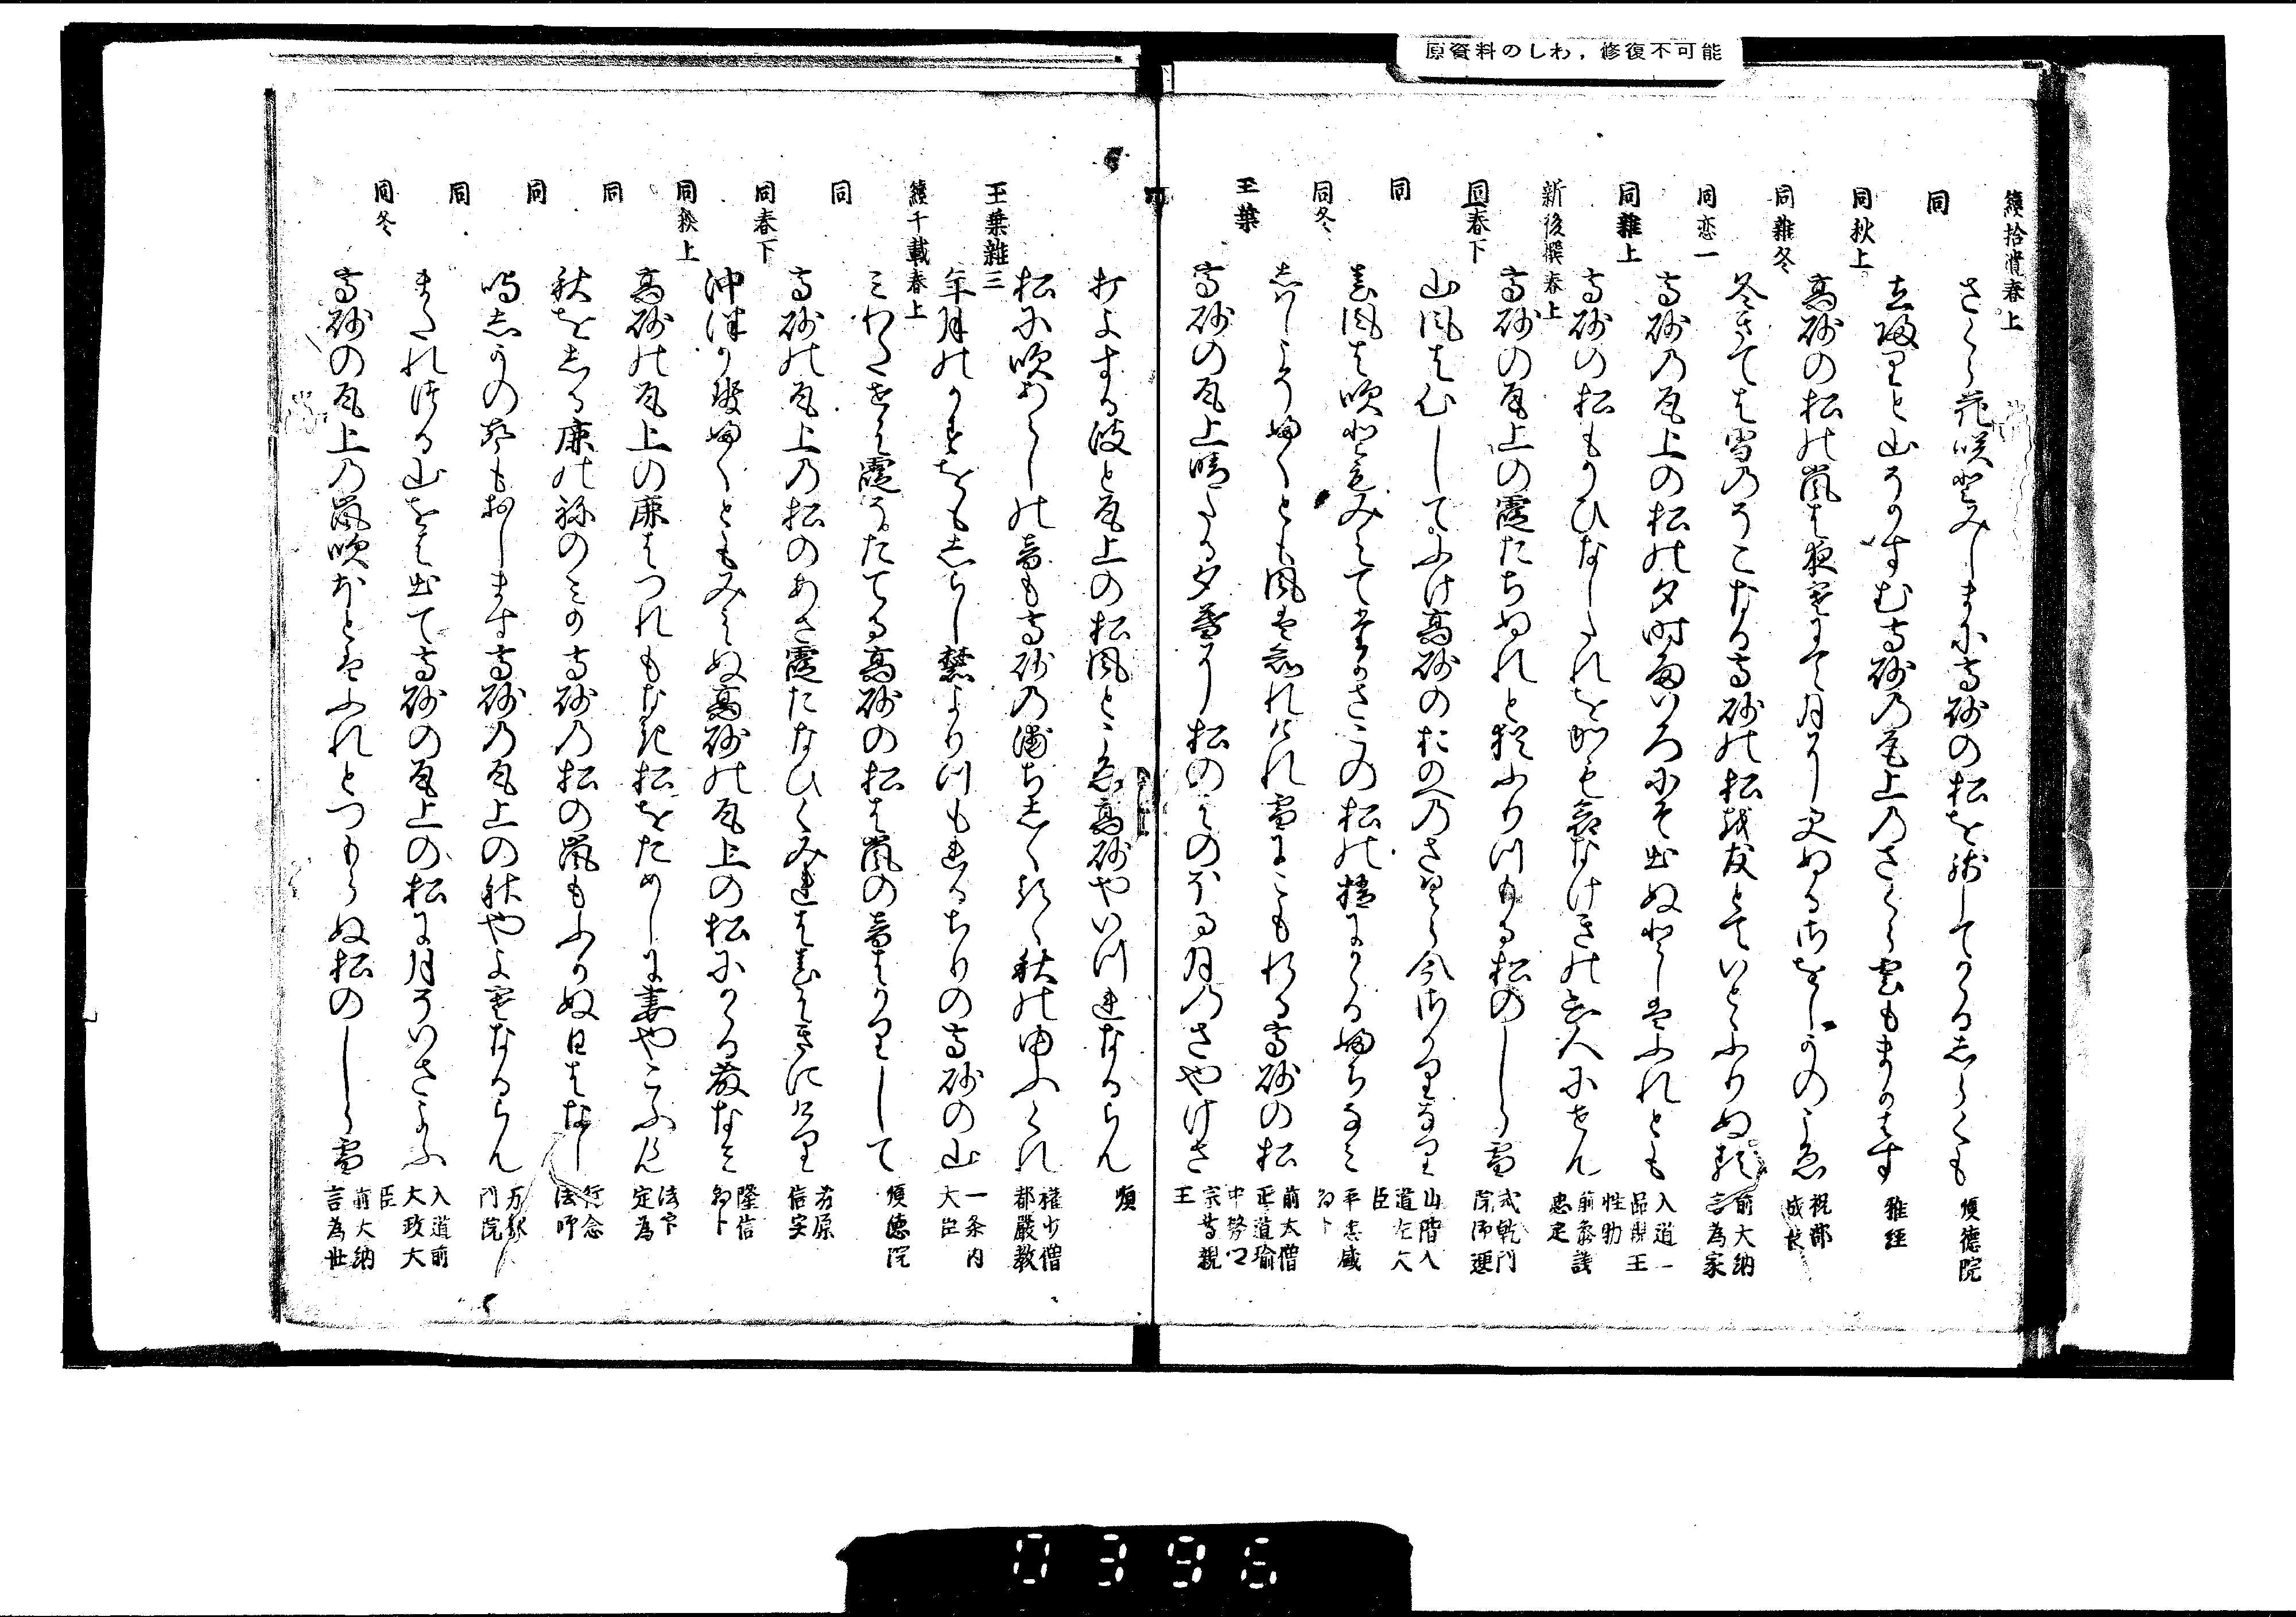 原資料のしわ，修復不可能
續拾遺春上
さくら花咲とみしまに高砂の松を残してかゝるしらくも
順徳院
同
立帰り と山そかすむ高砂乃尾上乃さくら雲もまかはす
雅経
同秋上
高砂の松の嵐は夜寒にて月に更ぬるさをしかのこゑ
祝部成茂
同雑冬
冬きては雪乃そこなる高砂の松を友とていとゝふりぬる
前大納言為家
同恋一
高砂乃尾上の松の夕時雨いろにそ出ぬとしはふれとも
入道一品親王性助
同雑上
高砂の松もかひなしたれをかもなけきの
前参議忠定
新後撰春上
高砂の尾上の霞たちぬれと猶ふりつもる松のしら雪
式乾門院御匣
同春下
山風は心してふけ高砂のおのへのさくら今さかりなり
山階入道左大臣
同
春風は吹ともみえて高さこの松の梢にかゝるふちなみ
平忠盛
同冬
しはしこそふくとも風はしられけれ雪にこもれる高砂の松
前大僧正道瑜
玉葉
高砂の尾上晴たる夕暮に松のはのほる月のさやけさ
中務卿宗尊親王
打よする波と尾上の松風とこゑ高砂やいつれなるらん
順
松に吹あらしの音も高砂の浦ちしらるゝ秋のゆふくれ
権少僧都嚴教
玉葉雑三
年月のかすをもしらし麓よりつもれるちりの高砂の山
一条内大臣
續千載春上
みわたせは霞そたてる高砂の松は嵐の音はかりして
順徳院
同
高砂の尾上の松のあさ霞たなひくみれは春はきにけり
藤原信実
同春下
沖津かせふくともみえぬ高砂の尾上の松にかゝる藤なみ
隆信
同秋上
高砂の尾上の鹿はつれもなき松をためしに妻やこふらん
法印定為
同
秋をしる鹿の祢のみか高砂の松の嵐もふかぬ日はなし
行念法師
同
鳴しかの声もおします高砂の尾上の秋や夜寒なるらん
門院
同
またれける山をは出て高砂の尾上の松に月そいさよふ
入道前大政大臣
同冬
高砂の尾上の嵐吹ほとはふれとつもらぬ松のしら雪
前大納言為世
0396